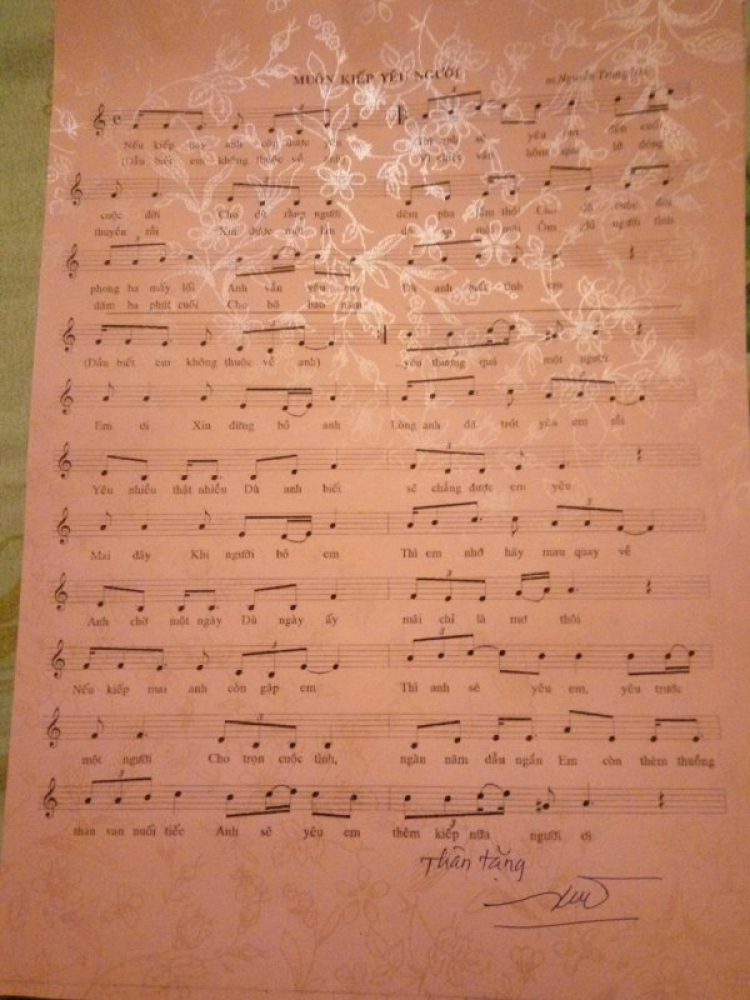 MUÔN KIẾP YÊU NGƯỜI
Nguyễn Trung
Nếu kiếp này anh còn được yêu sẽ yêu em đến cuối
(Dẫu biết em không thuộc về anh) vẫn hôm qua lỡ đóng
cuộc đời Cho dù rằng người dèm pha Cho dù cuộc đời
thuyền rồi Xin được một Ôm người tình
phong ba mấy lối Anh vẫn yêu em Dù anh biết tình em
dăm ba phút cuối Cho bõ bao năm
(Dẫu biết em không thuộc về anh) yêu thương quá một người
Em ơi Xin đừng bỏ anh Lòng anh đã trót yêu em rồi
Yêu nhiều thật nhiều Dù anh biết sẽ chẳng được em yêu
Mai đây Khi người bỏ em Thì em nhớ hãy mau quay về
Anh chờ một ngày Dù ngày ấy mãi chỉ là mơ thôi
Nếu kiếp mai anh còn gặp em Thì anh sẽ yêu em, yêu trước
một người Cho trọn cuộc tình, ngàn năm dẫu ngắn Em còn thèm thuồng
than van nuối tiếc Anh sẽ yêu em thêm kiếp nữa người ơi
Thân tặng